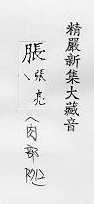 精嚴新集大藏音
脹 張亮
肉部